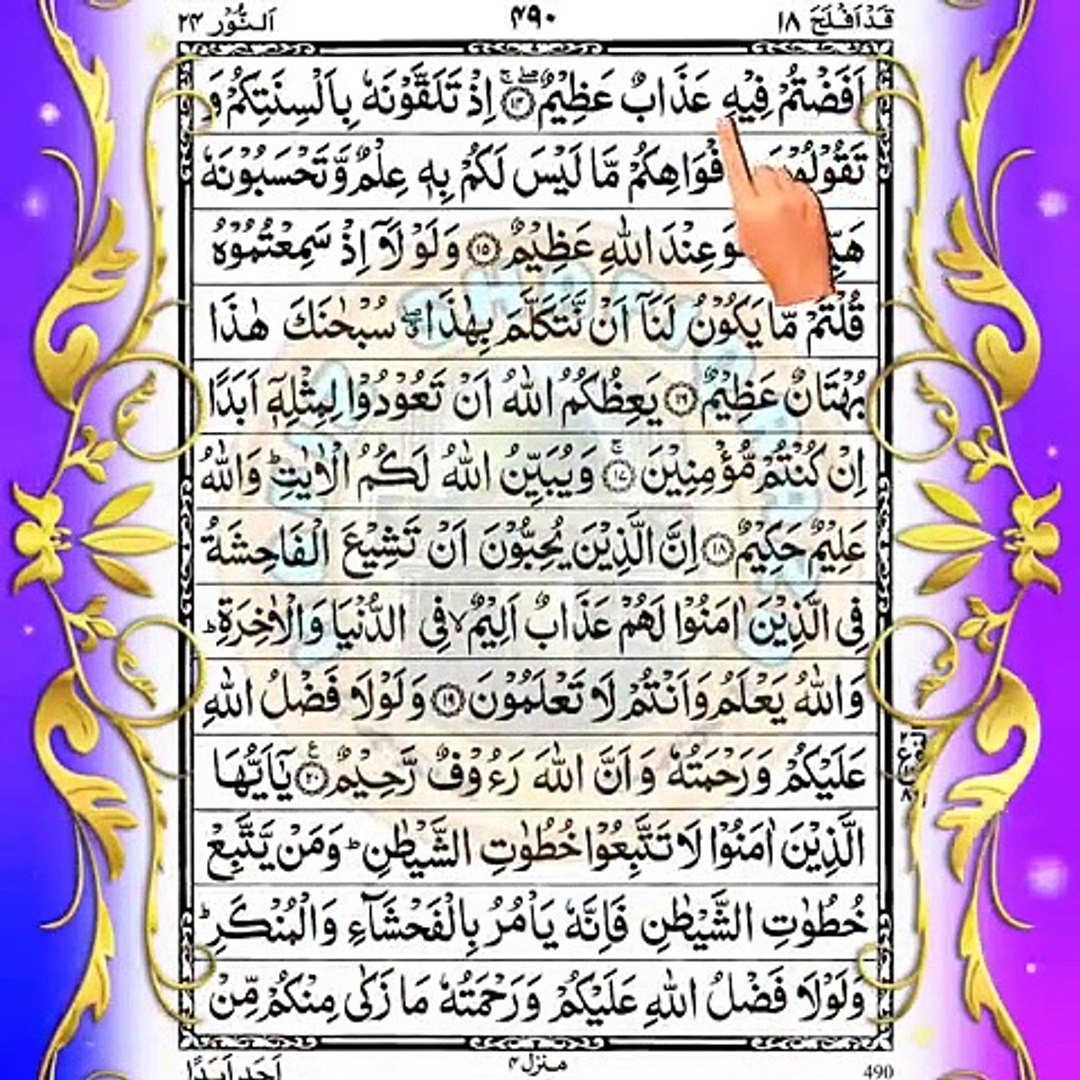 قَدْ اَفْلَحَ ۱۸ ۴۹۰ اَلنُّوْر ۲۴
اَفَضْتُمْ فِيْهِ عَذَابٌ عَظِيْمٌ ۚۖ ۱۴ اِذْ تَلَقَّوْنَهٗ بِاَلْسِنَتِكُمْ وَ
تَقُوْلُوْنَ فْوَاهِكُمْ مَّا لَيْسَ لَكُمْ بِهٖ عِلْمٌ وَّتَحْسَبُوْنَهٗ
وَعِنْدَ اللّٰهِ عَظِيْمٌ ۱۵ وَلَوْلَاۤ اِذْ سَمِعْتُمُوْهُ
قُلْتُمْ مَّا يَكُوْنُ لَنَاۤ اَنْ نَّتَكَلَّمَ بِهٰذَا ۖ سُبْحٰنَكَ هٰذَا
بُهْتَانٌ عَظِيْمٌ ۱۶ يَعِظُكُمُ اللّٰهُ اَنْ تَعُوْدُوْا لِمِثْلِهٖۤ اَبَدًا
اِنْ كُنْتُمْ مُّؤْمِنِيْنَ ۚ ۱۷ وَيُبَيِّنُ اللّٰهُ لَكُمُ الْاٰيٰتِ ؕ وَاللّٰهُ
عَلِيْمٌ حَكِيْمٌ ۱۸ اِنَّ الَّذِيْنَ يُحِبُّوْنَ اَنْ تَشِيْعَ الْفَاحِشَةُ
فِى الَّذِيْنَ اٰمَنُوْا لَهُمْ عَذَابٌ اَلِيْمٌ ۙ فِى الدُّنْيَا وَالْاٰخِرَةِ ؕ
وَاللّٰهُ يَعْلَمُ وَاَنْتُمْ لَا تَعْلَمُوْنَ ۱۹ وَلَوْلَا فَضْلُ اللّٰهِ
عَلَيْكُمْ وَرَحْمَتُهٗ وَاَنَّ اللّٰهَ رَءُوْفٌ رَّحِيْمٌ ۲۰ يٰۤاَيُّهَا
الَّذِيْنَ اٰمَنُوْا لَا تَتَّبِعُوْا خُطُوٰتِ الشَّيْطٰنِ ؕ وَمَنْ يَّتَّبِعْ
خُطُوٰتِ الشَّيْطٰنِ فَاِنَّهٗ يَاْمُرُ بِالْفَحْشَآءِ وَالْمُنْكَرِ ؕ
وَلَوْلَا فَضْلُ اللّٰهِ عَلَيْكُمْ وَرَحْمَتُهٗ مَا زَكٰى مِنْكُمْ مِّنْ
490 منزل ۴ اَحَدٍ اَبَدًا